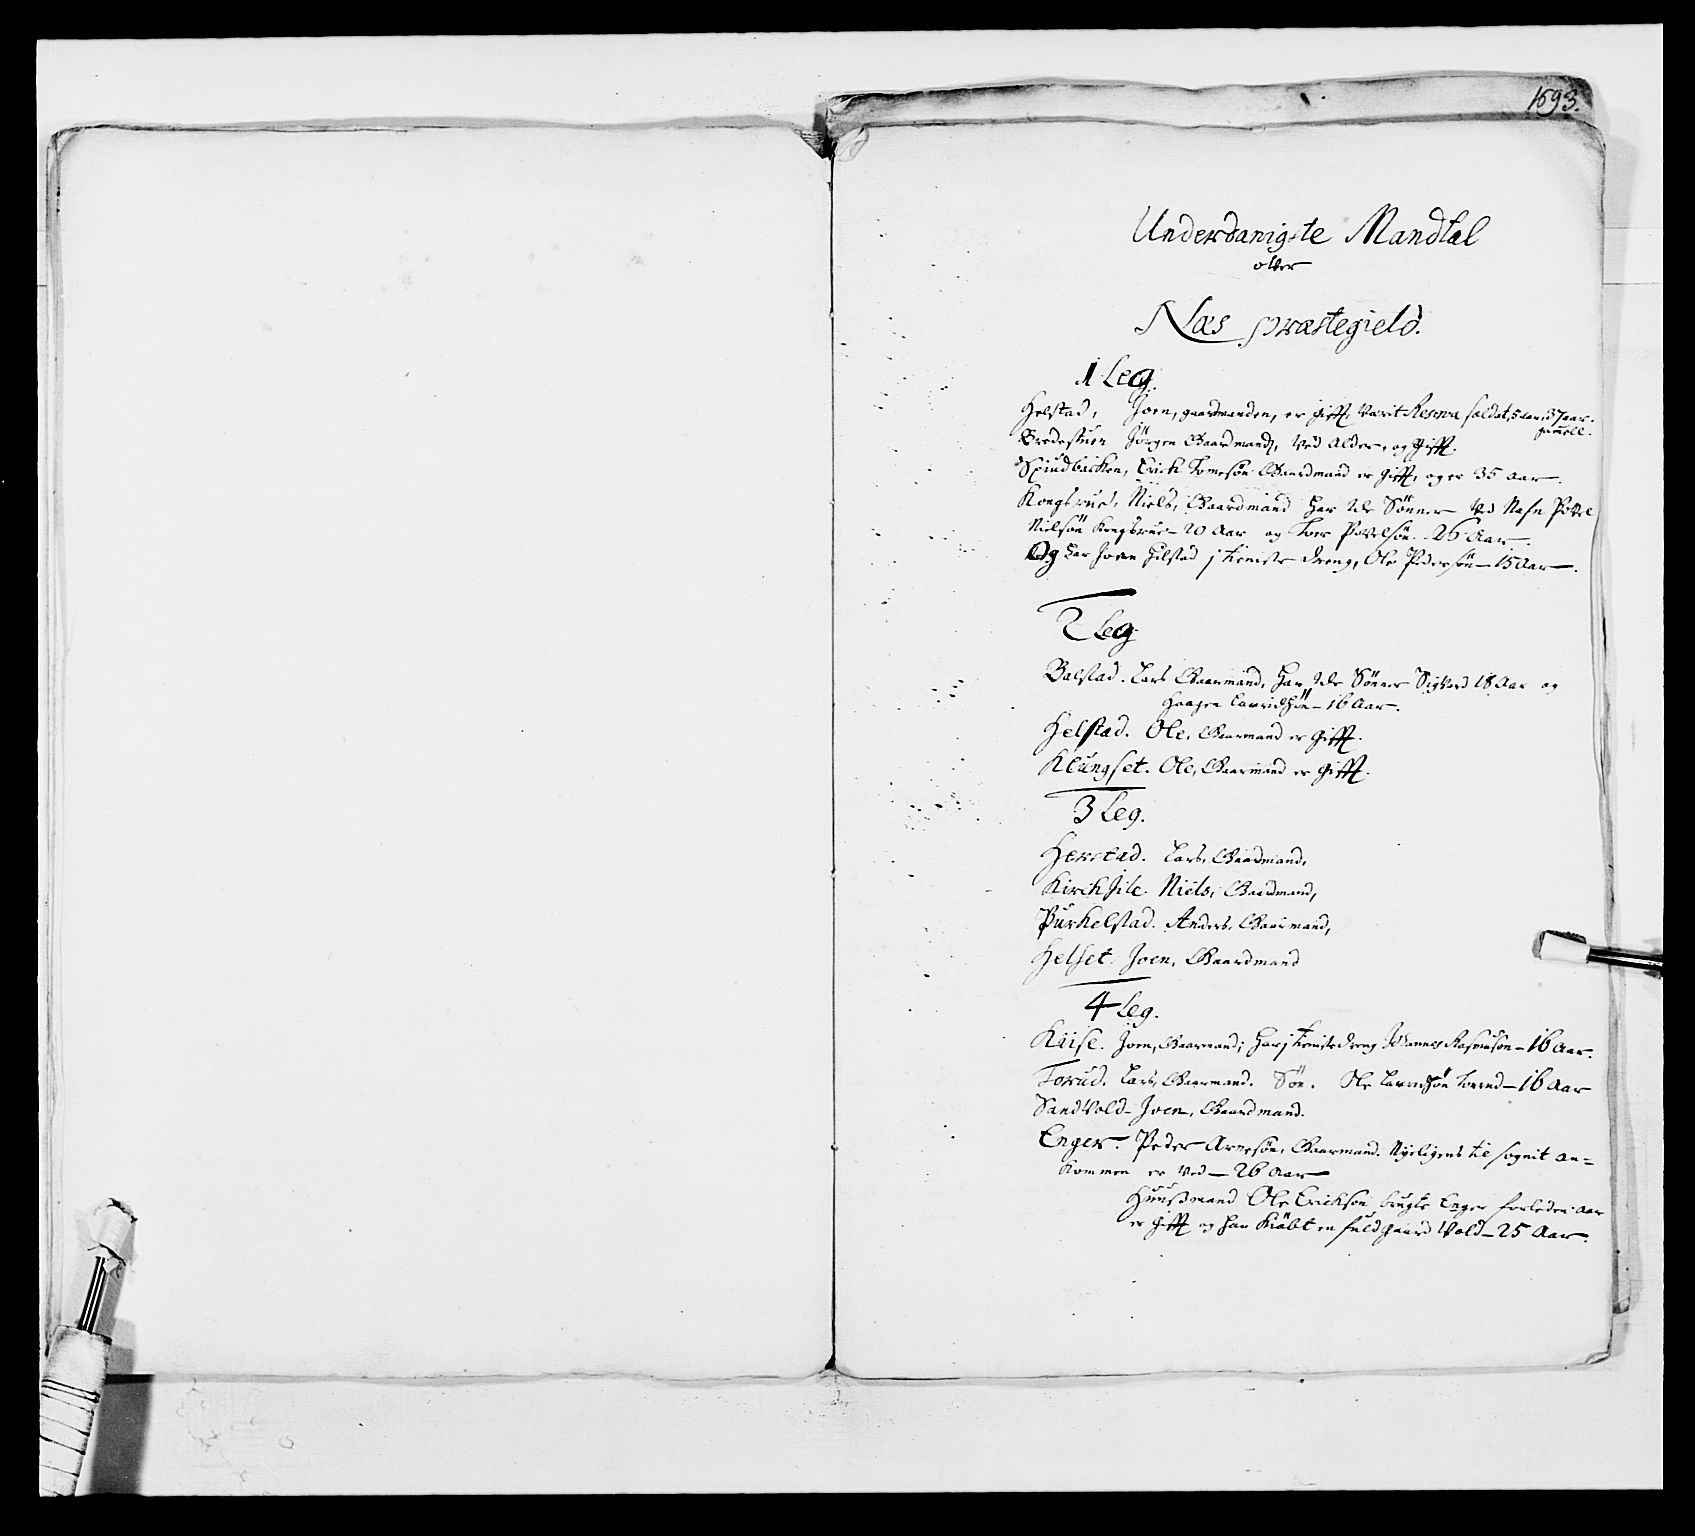 1693.
Underdanigste Mandtal
ofver
Næs præstegield.
1 Leg.
Helstad, Joen, gaardmanden, er gifft, værit Reserve soldat, 5 aar, 37 aar.
gammell.
Bredestuen Jörgen Gaardmand, ved Alder, og gifft.
Spiudbacken, Erick Tomesön Gaardmand er gifft, og er 35 aar.
Kongsrue, Niels, Gaardmand har 2de Sönner ved Nafn Povel
Nielsön Kongsrue - 20 Aar og Tor Povelsön. 26 Aar.
Og har Joen Helstad j tieniste dreng, Ole Pedersön - 15 Aar.
2 Leg.
Balstad. Lars Gaarmand, har 2de Sönner Sigvord 18 Aar og
Haagen Lauridsön - 16 Aar.
Helstad. Ole, Gaarmand er gifft.
Klungset. Ole, Gaarmand er gifft.
3 Leg.
Herstad. Lars, Gaardmand,
Kirchhile. Niels, Gaardmand,
Purkelstad. Anders, Gaarmand,
Helset. Joen, Gaardmand
4 Leg.
Kiise. Joen, Gaarmand; har j tieniste dreng Johannes Rasmusön - 16 Aar.
Torud. Lars, Gaarmand. Sön. Ole Lauridsön Torud - 16 Aar
Sandvold - Joen, Gaardmand.
Enger. Peder Arnesön, Gaarmand. Nyeligens til sognit an=
kommen er ved - 26 Aar
Huusmand Ole Ericksön brugte Enger forleden aar
er gifft og har kiöbt en fuld gaard Vold - 25 Aar.